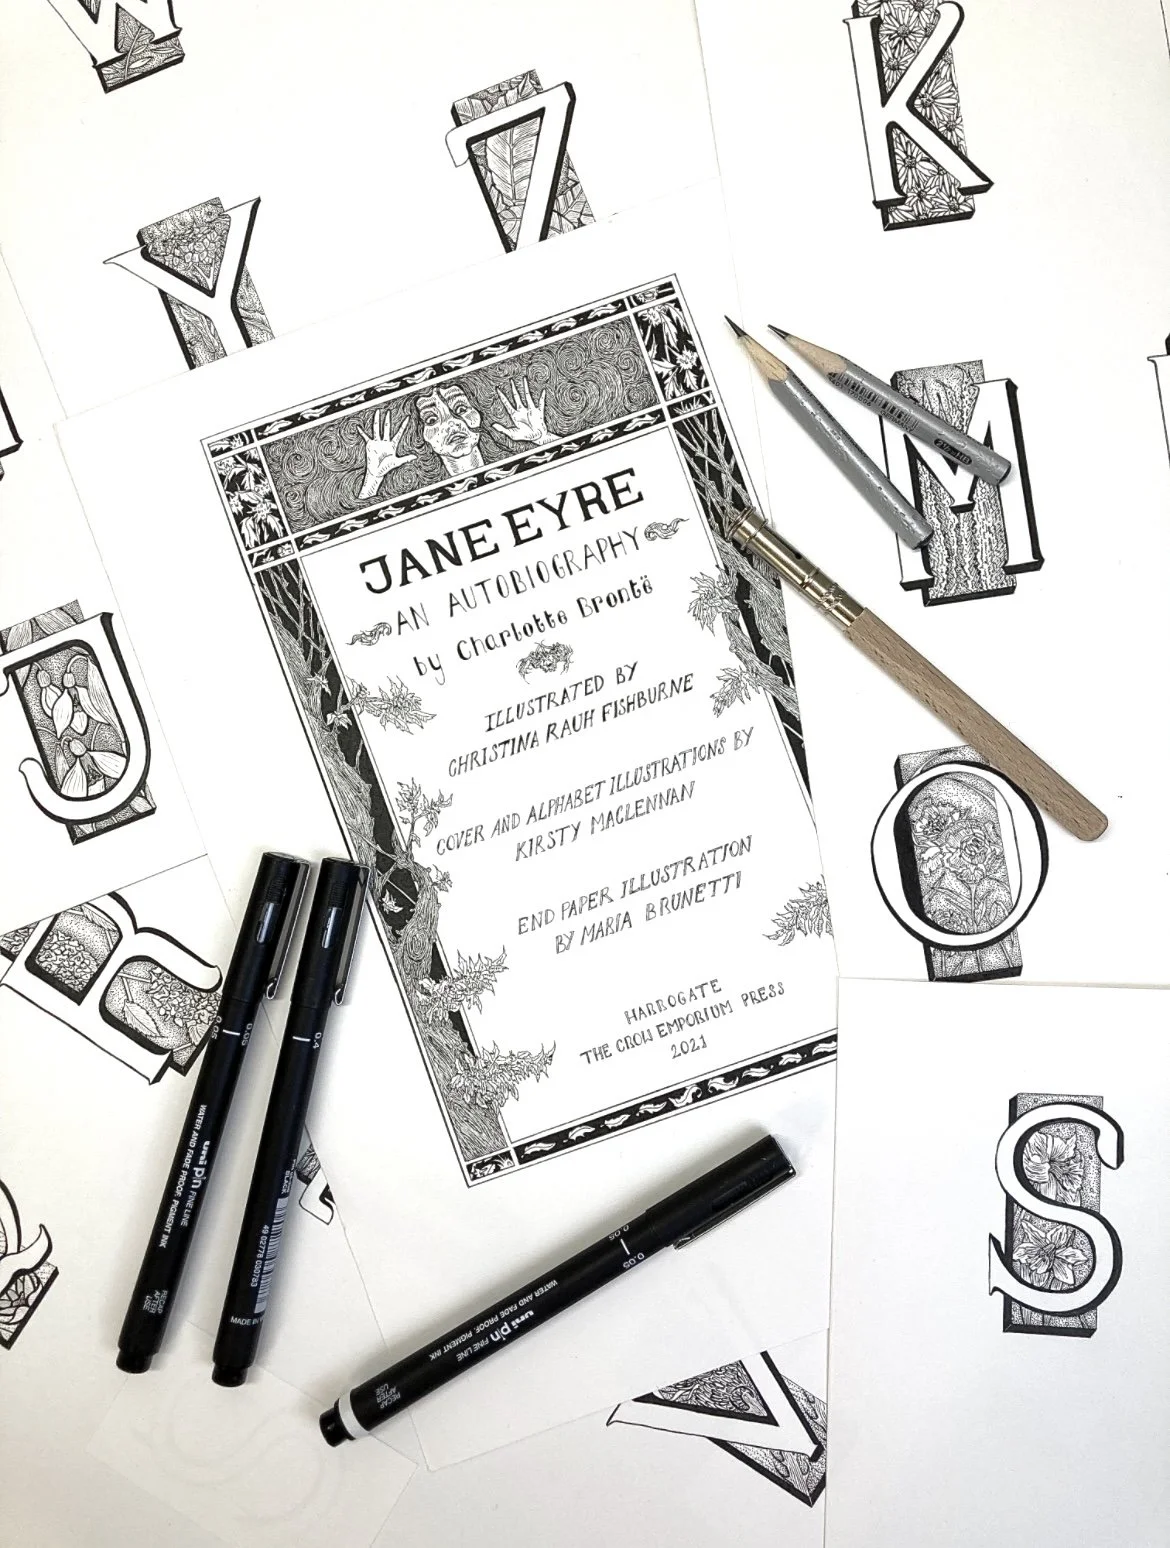 W
Z
K
Y
M
JANE EYRE
AN AUTOBIOGRAPHY
by Charlotte Brontë
ILLUSTRATED BY
CHRISTINA RAUH FISHBURNE
COVER AND ALPHABET ILLUSTRATIONS BY
KIRSTY MACLENNAN
END PAPER ILLUSTRATION
BY MARIA BRUNETTI
HARROGATE
THE CROW EMPORIUM PRESS
2021
J
O
R
S
V
0.05
0.05
WATER AND FADE PROOF, PIGMENT INK
uni pin FINE LINE
RECAP
AFTER
USE
0.4
BLACK
49 02778 030783
MADE IN
0.05
0.05
WATER AND FADE PROOF, PIGMENT INK
uni pin FINE LINE
RECAP
AFTER
USE